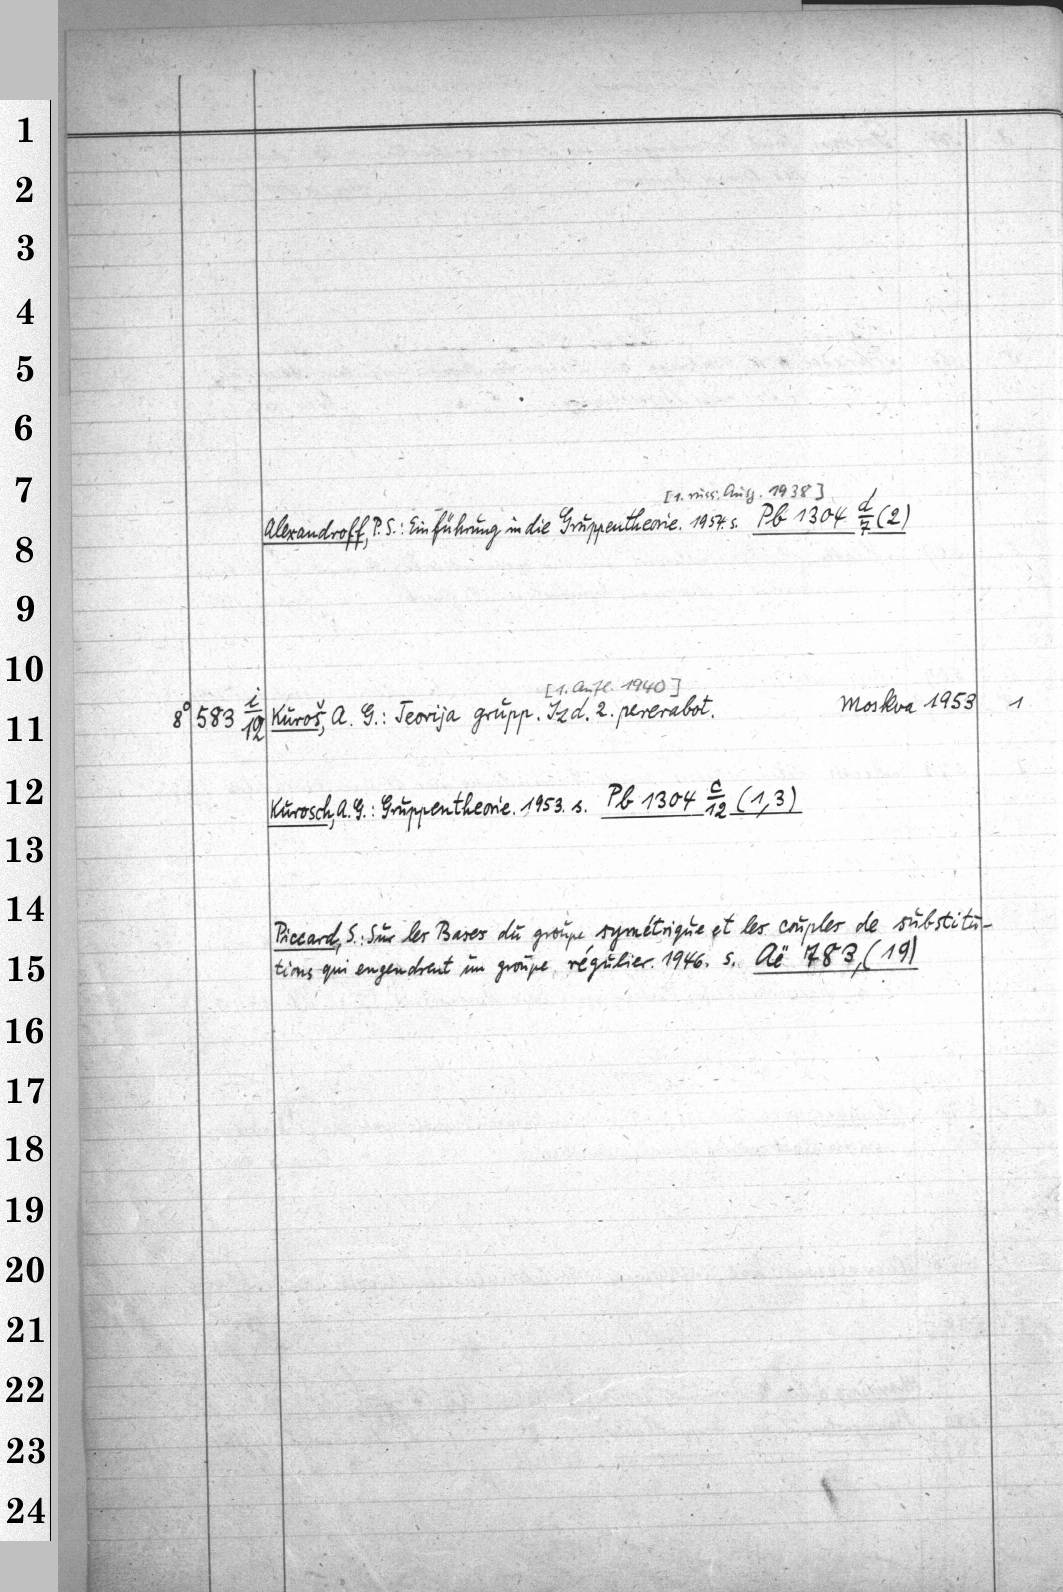 1
2
3
4
5
6
7
[1. russ. Aufl. 1938]
Alexandroff, P. S.: Einführung in die Gruppentheorie. 1954. s. Pb 1304 d/7 (2)
8
9
10
[1. Aufl. 1940]
8° 583 i/12 Kuroš, A. G.: Teorija grupp. Izd. 2. pererabot. Moskva 1953 1
11
12
Kurosch, A. G.: Gruppentheorie. 1953. s. Pb 1304 c/12 (1,3)
13
14
Piccard, S.: Sur les Bases du groupe symétrique et les couples de substitu-
15
tions qui engendrent un groupe régulier. 1946. s. Aë 783, (19)
16
17
18
19
20
21
22
23
24